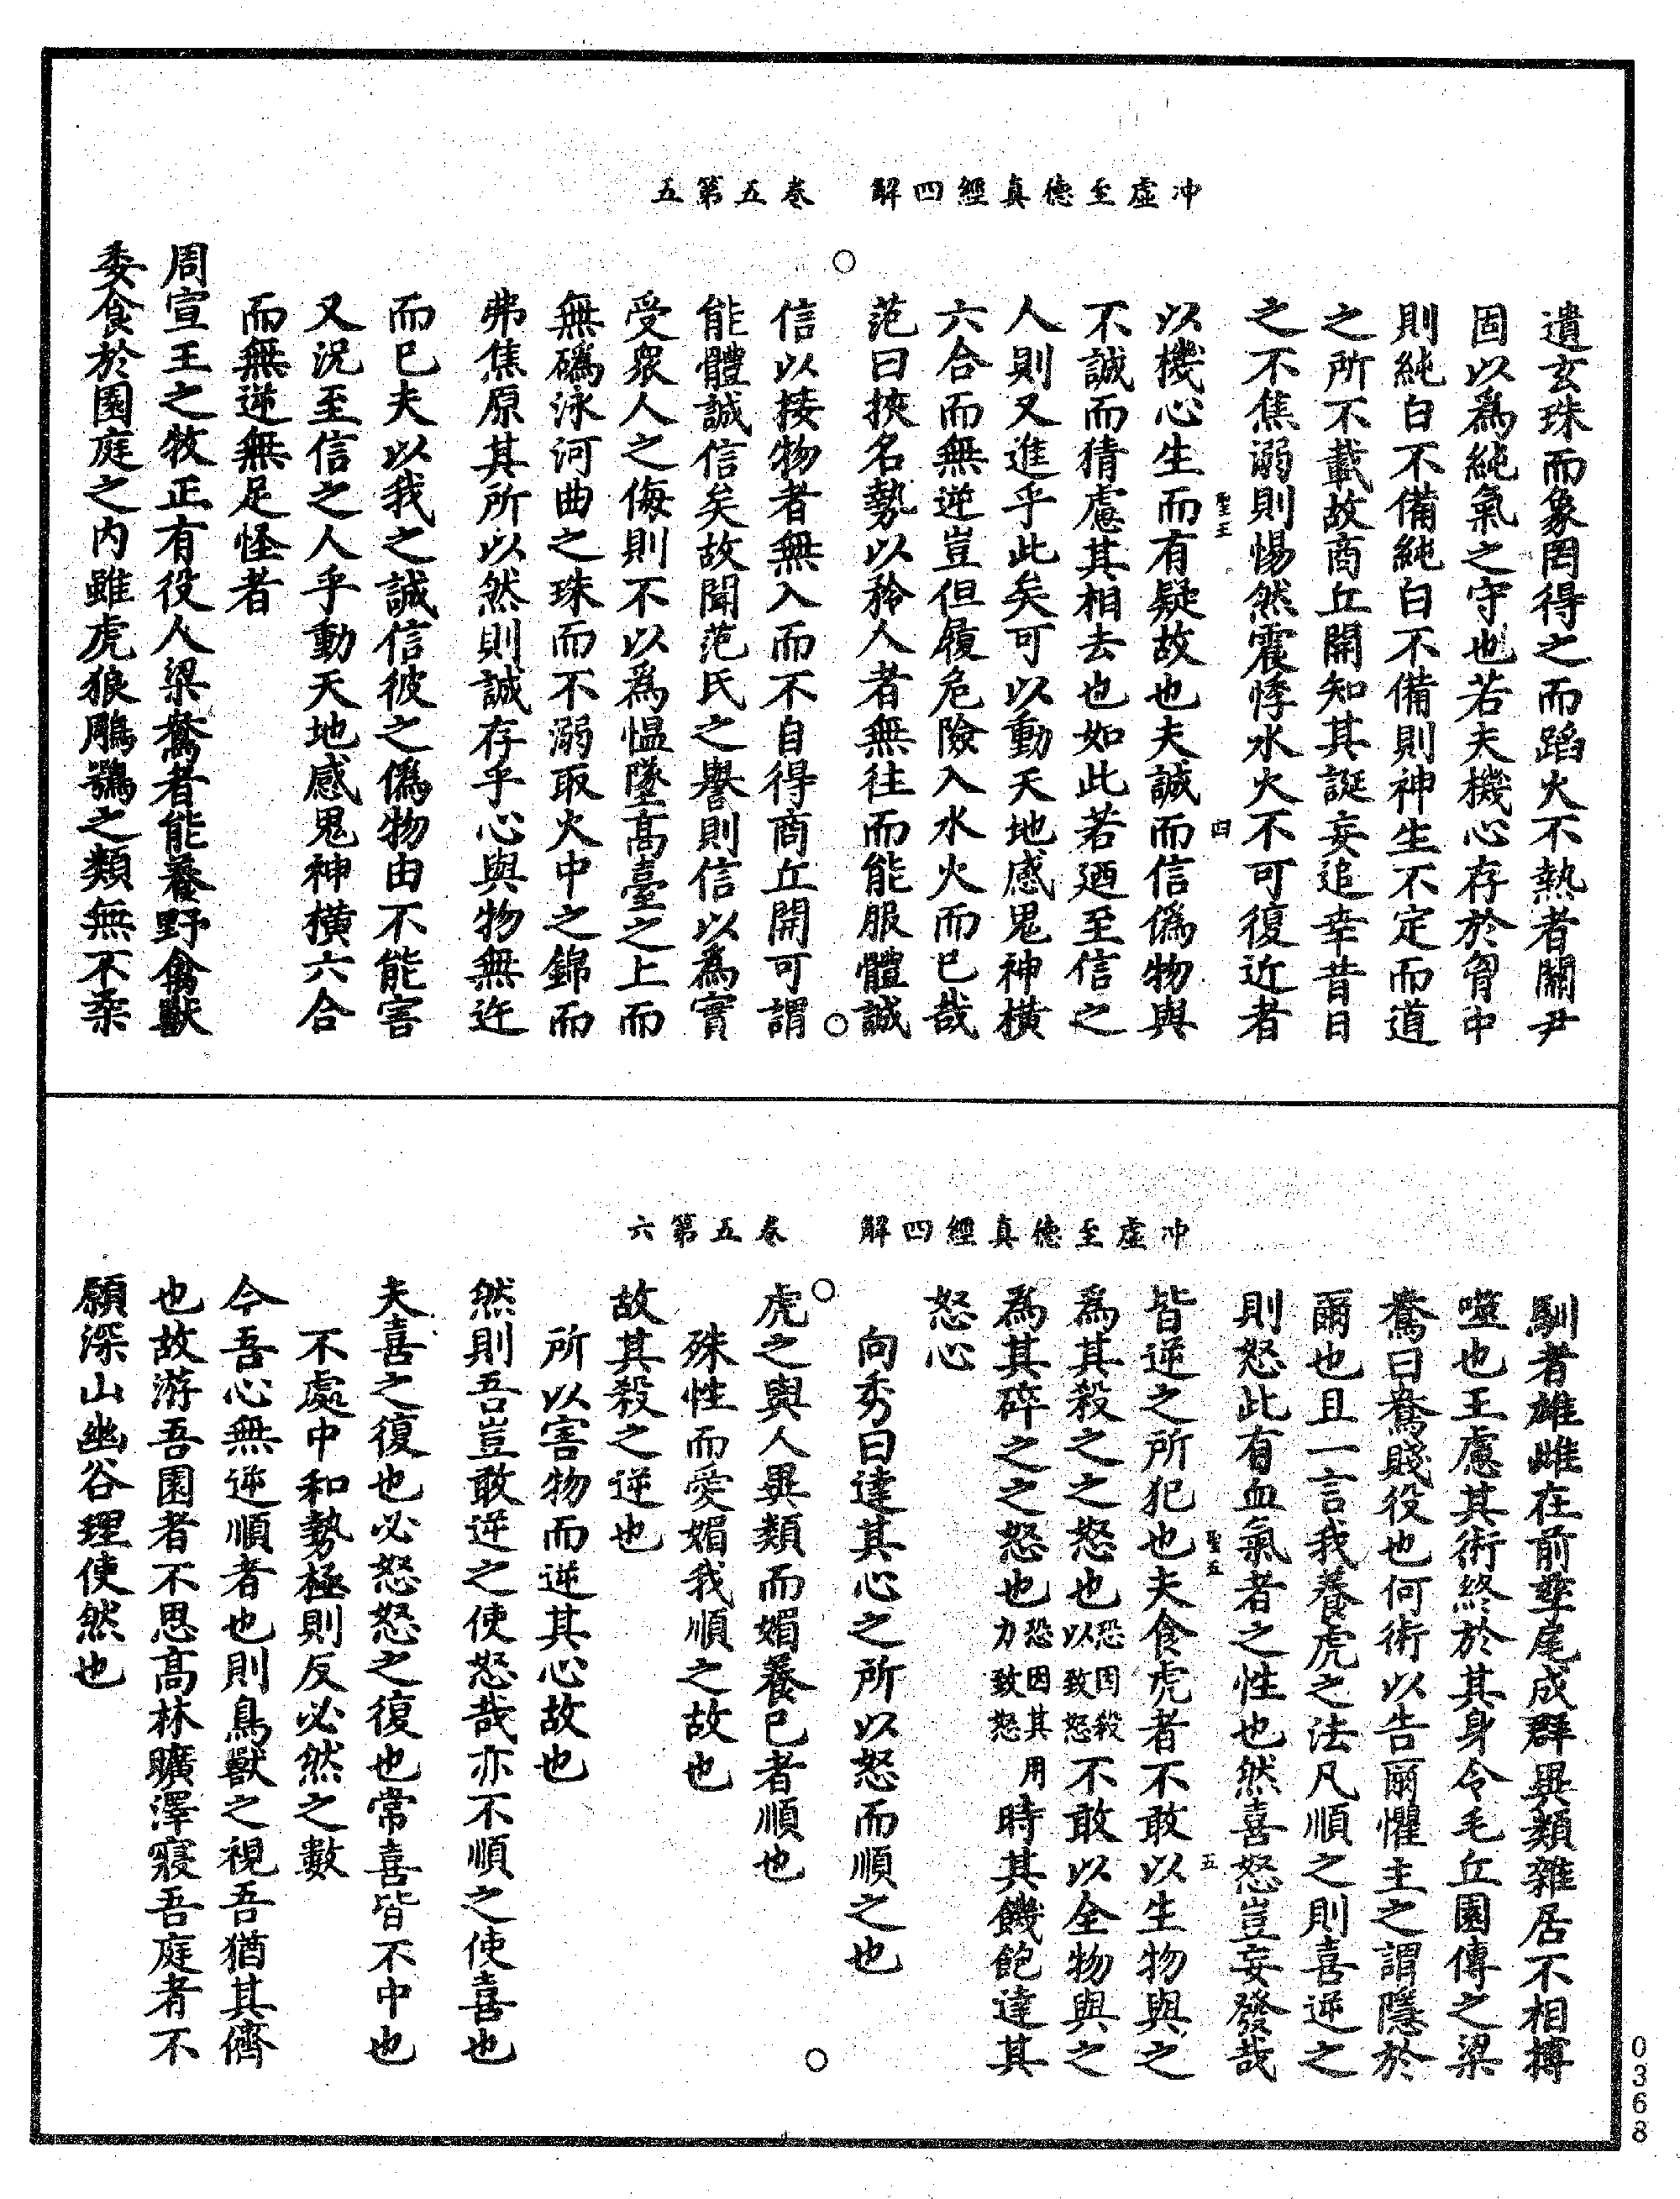 沖虛至德真經四解　卷五第五
遺玄珠而象罔得之而蹈火不熱者關尹
固以爲純氣之守也若夫機心存於胷中
則純白不備純白不備則神生不定而道
之所不載故商丘開知其誕妄追幸昔日
之不焦溺則惕然震悸水火不可復近者
聖五　四
以機心生而有疑故也夫誠而信僞物與
不誠而猜慮其相去也如此若廼至信之
人則又進乎此矣可以動天地感鬼神橫
六合而無逆豈但履危險入水火而已哉
范曰挾名勢以矜人者無往而能服體誠
信以接物者無入而不自得商丘開可謂
能體誠信矣故聞范氏之譽則信以爲實
受衆人之侮則不以爲愠墜高臺之上而
無䃣泳河曲之珠而不溺取火中之錦而
弗焦原其所以然則誠存乎心與物無迕
而已夫以我之誠信彼之僞物由不能害
又況至信之人乎動天地感鬼神橫六合
而無逆無足怪者
周宣王之牧正有役人梁鴦者能養野禽獸
委食於園庭之內雖虎狼鵰鶚之類無不柔
沖虛至德真經四解　卷五第六
馴者雄雌在前孳尾成群異類雜居不相搏
噬也王慮其術終於其身令毛丘園傳之梁
鴦曰鴦賤役也何術以告爾懼王之謂隱於
爾也且一言我養虎之法凡順之則喜逆之
則怒此有血氣者之性也然喜怒豈妄發哉
聖五　五
皆逆之所犯也夫食虎者不敢以生物與之
爲其殺之之怒也恐因殺以致怒不敢以全物與之
爲其碎之之怒也恐因其用力致怒時其饑飽達其
怒心
向秀曰達其心之所以怒而順之也
虎之與人異類而媚養己者順也
殊性而愛媚我順之故也
故其殺之逆也
所以害物而逆其心故也
然則吾豈敢逆之使怒哉亦不順之使喜也
夫喜之復也必怒怒之復也常喜皆不中也
不處中和勢極則反必然之數
今吾心無逆順者也則鳥獸之視吾猶其儕
也故游吾園者不思高林曠澤寢吾庭者不
願深山幽谷理使然也
0368